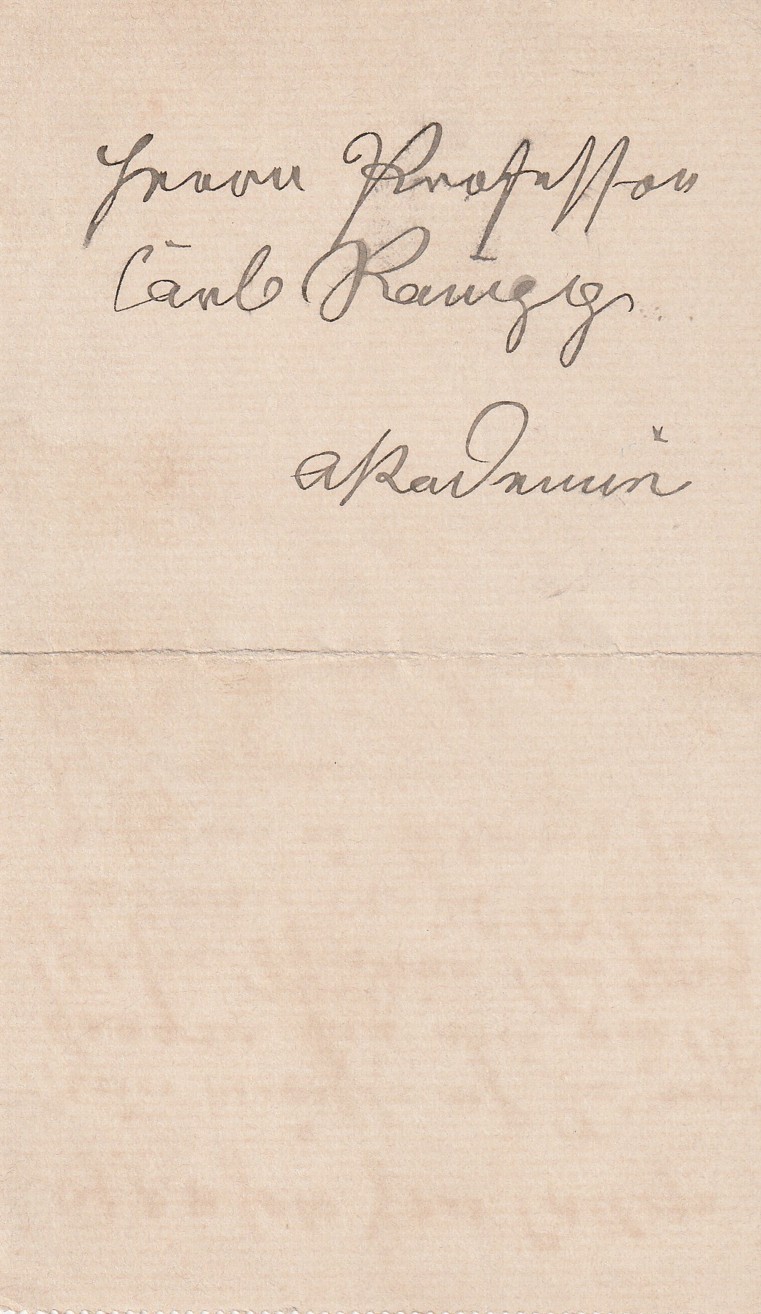 Herrn Professor
Carl Raupp
Akademie